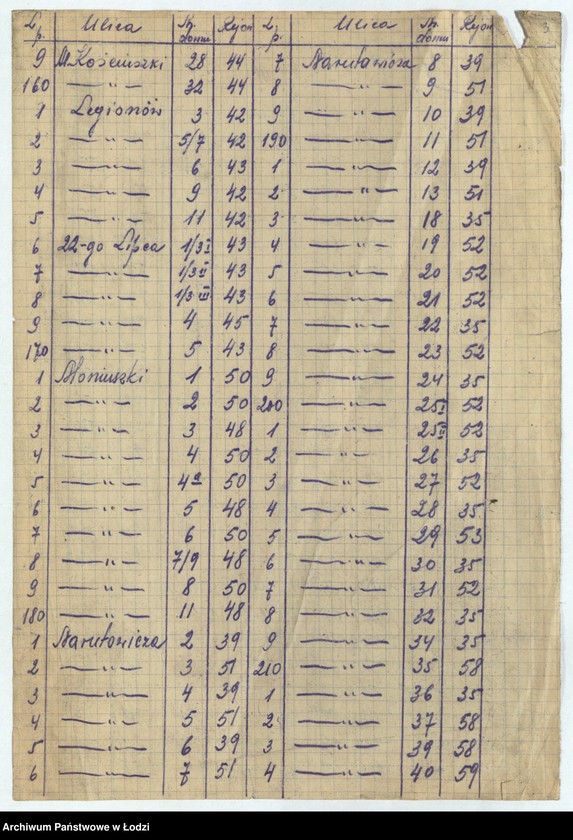 L.p. Ulica Nr. domu Rejon L.p. Ulica Nr. domu Rejon
3.
9 Al. Kościuszki 28 44 7 Narutowicza 8 39
160 —"— 32 44 8 —"— 9 51
1 Legionów 3 42 9 —"— 10 39
2 —"— 5/7 42 190 —"— 11 51
3 —"— 6 43 1 —"— 12 39
4 —"— 9 42 2 —"— 13 51
5 —"— 11 42 3 —"— 18 35
6 22-go Lipca 1/3 I 43 4 —"— 19 52
7 —"— 1/3 II 43 5 —"— 20 52
8 —"— 1/3 III 43 6 —"— 21 52
9 —"— 4 45 7 —"— 22 35
170 —"— 5 43 8 —"— 23 52
1 Moniuszki 1 50 9 —"— 24 35
2 —"— 2 50 200 —"— 25 I 52
3 —"— 3 48 1 —"— 25 II 52
4 —"— 4 50 2 —"— 26 35
5 —"— 4a 50 3 —"— 27 52
6 —"— 5 48 4 —"— 28 35
7 —"— 6 50 5 —"— 29 53
8 —"— 7/9 48 6 —"— 30 35
9 —"— 8 50 7 —"— 31 52
180 —"— 11 48 8 —"— 32 35
1 Narutowicza 2 39 9 —"— 34 35
2 —"— 3 51 210 —"— 35 58
3 —"— 4 39 1 —"— 36 35
4 —"— 5 51 2 —"— 37 58
5 —"— 6 39 3 —"— 39 58
6 —"— 7 51 4 —"— 40 59
Archiwum Państwowe w Łodzi